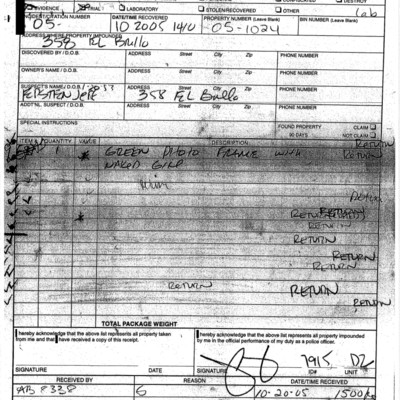 EVIDENCE LABORATORY STOLEN/RECOVERED OTHER lab
INCIDENT/CITATION NUMBER DATE/TIME RECOVERED PROPERTY NUMBER (Leave Blank) BIN NUMBER (Leave Blank)
05- 10 2005 1410 05-1024
ADDRESS WHERE PROPERTY IMPOUNDED
358 EL Brillo
DISCOVERED BY / D.O.B. ADDRESS Street City Zip PHONE NUMBER
OWNER'S NAME / D.O.B. ADDRESS Street City Zip PHONE NUMBER
SUSPECT'S NAME / D.O.B. ADDRESS Street City Zip PHONE NUMBER
358 EL Brillo
ADDT'NL SUSPECT / D.O.B. ADDRESS Street City Zip PHONE NUMBER
SPECIAL INSTRUCTIONS
FOUND PROPERTY
90 DAYS NOT CLAIM
ITEM # QUANTITY VALUE DESCRIPTION RETURN
1 GREEN PHOTO FRAME WITH RETURN
NAKED GIRL
RETURN
RETURN
RETURN
RETURN
RETURN
RETURN
RETURN RETURN
RETURN
TOTAL PACKAGE WEIGHT
I hereby acknowledge that the above list represents all property taken
from me and that I have received a copy of this receipt.
I hereby acknowledge that the above list represents all property impounded
by me in the official performance of my duty as a police officer.
7915 D2
SIGNATURE DATE SIGNATURE ID# UNIT
RECEIVED BY REASON DATE/TIME RECEIVED
AB 8338 6 10-20-05 1500